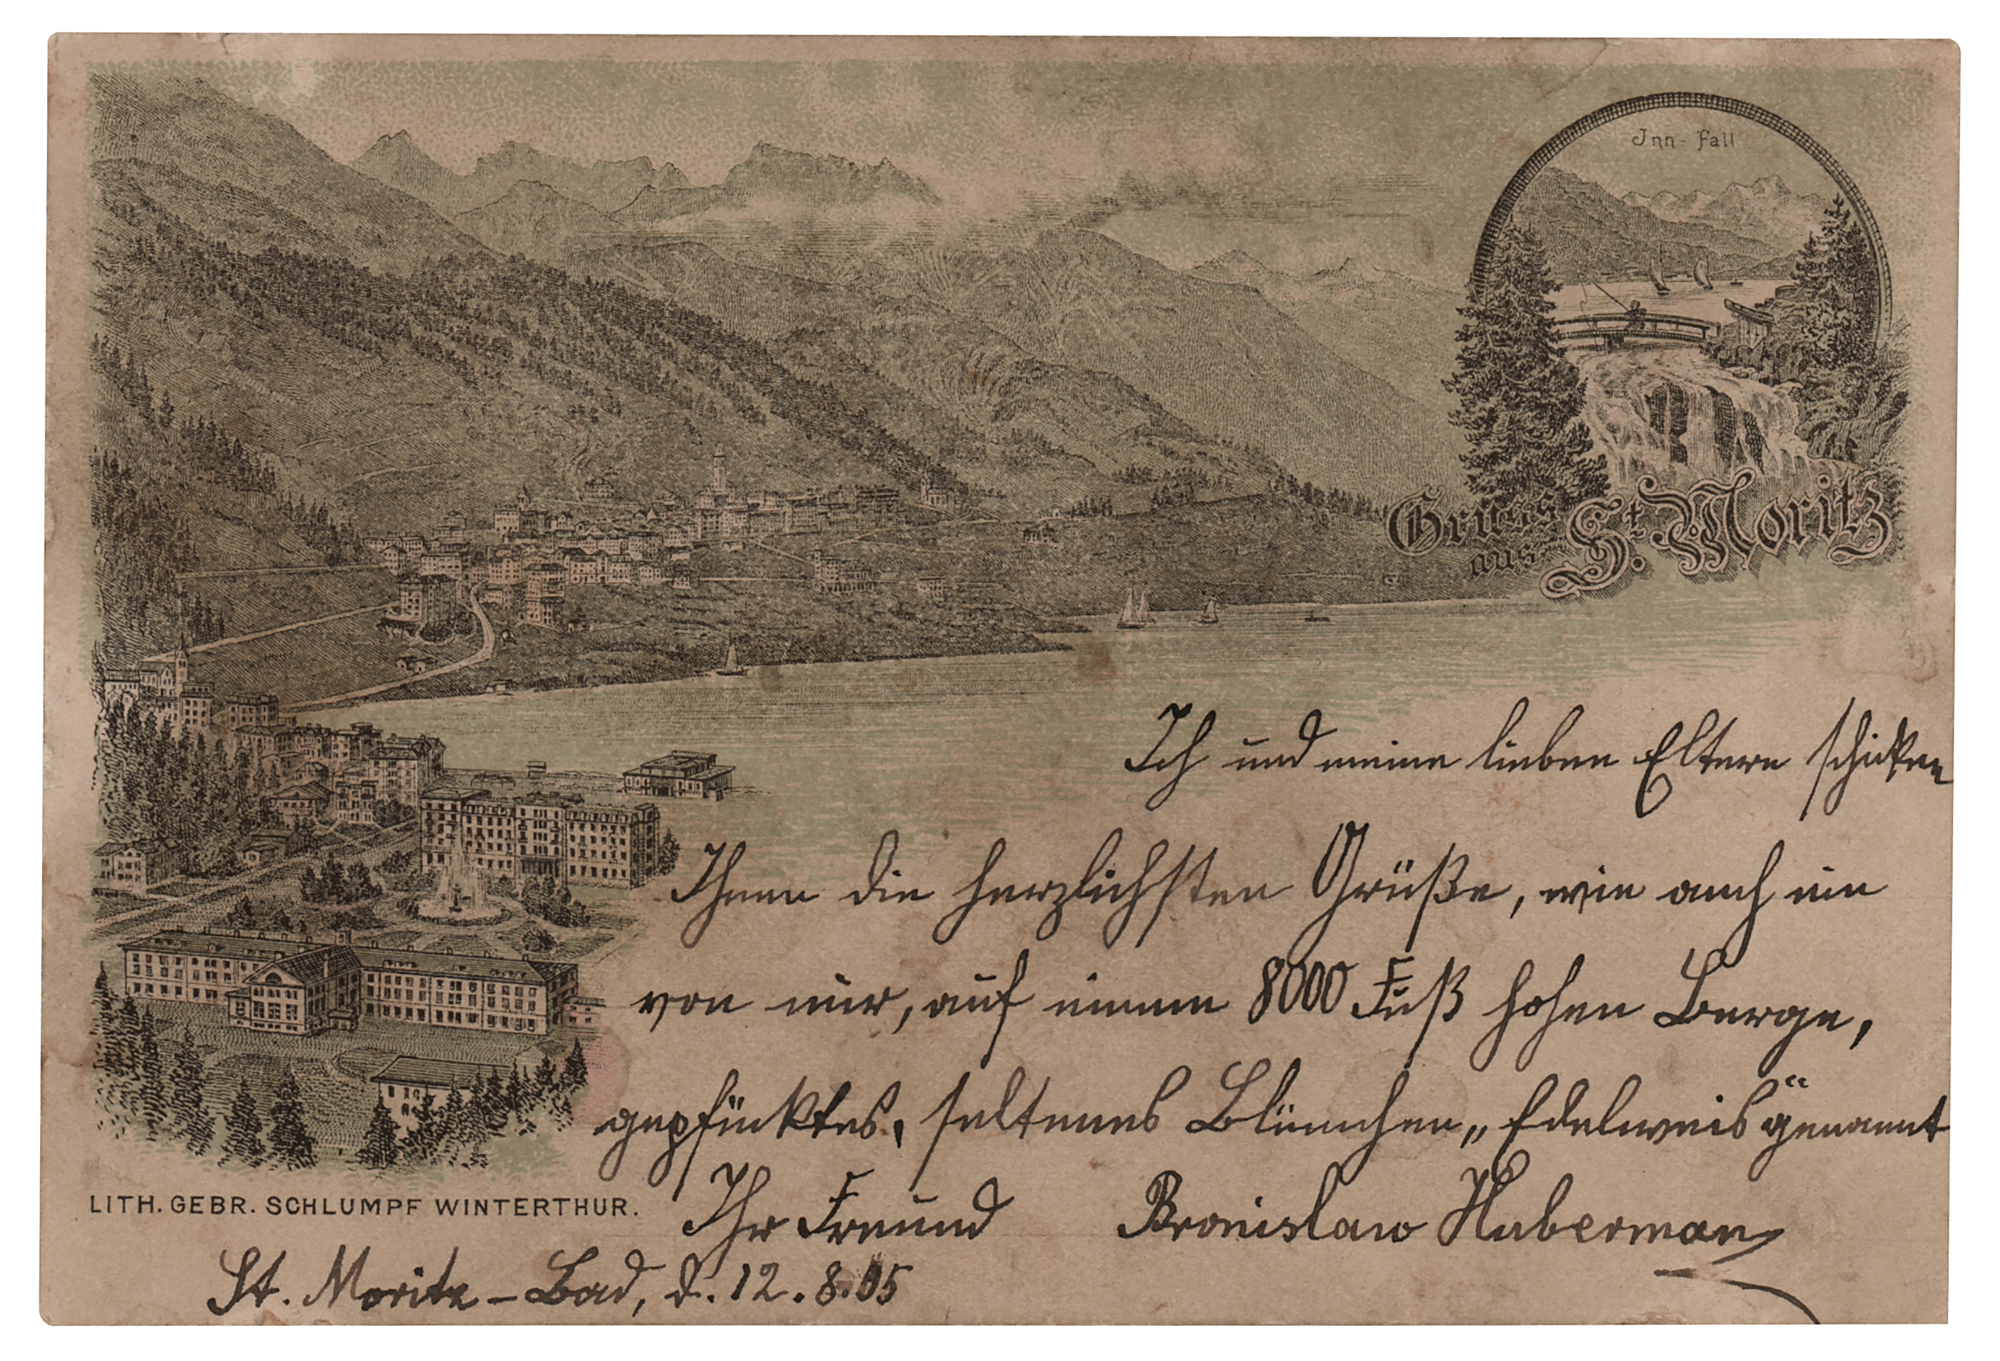 Inn-Fall
Gruss
aus St. Moritz
Ich und meine lieben Eltern schicken
Ihnen die herzlichsten Grüße, wie auch ein
von mir, auf einem 8000 Fuß hohen Berge,
gepflücktes, seltenes Blümchen „Edelweis" genannt
Ihr Freund Bronislaw Huberman
LITH. GEBR. SCHLUMPF WINTERTHUR.
St. Moritz-Bad, d. 12.8.95